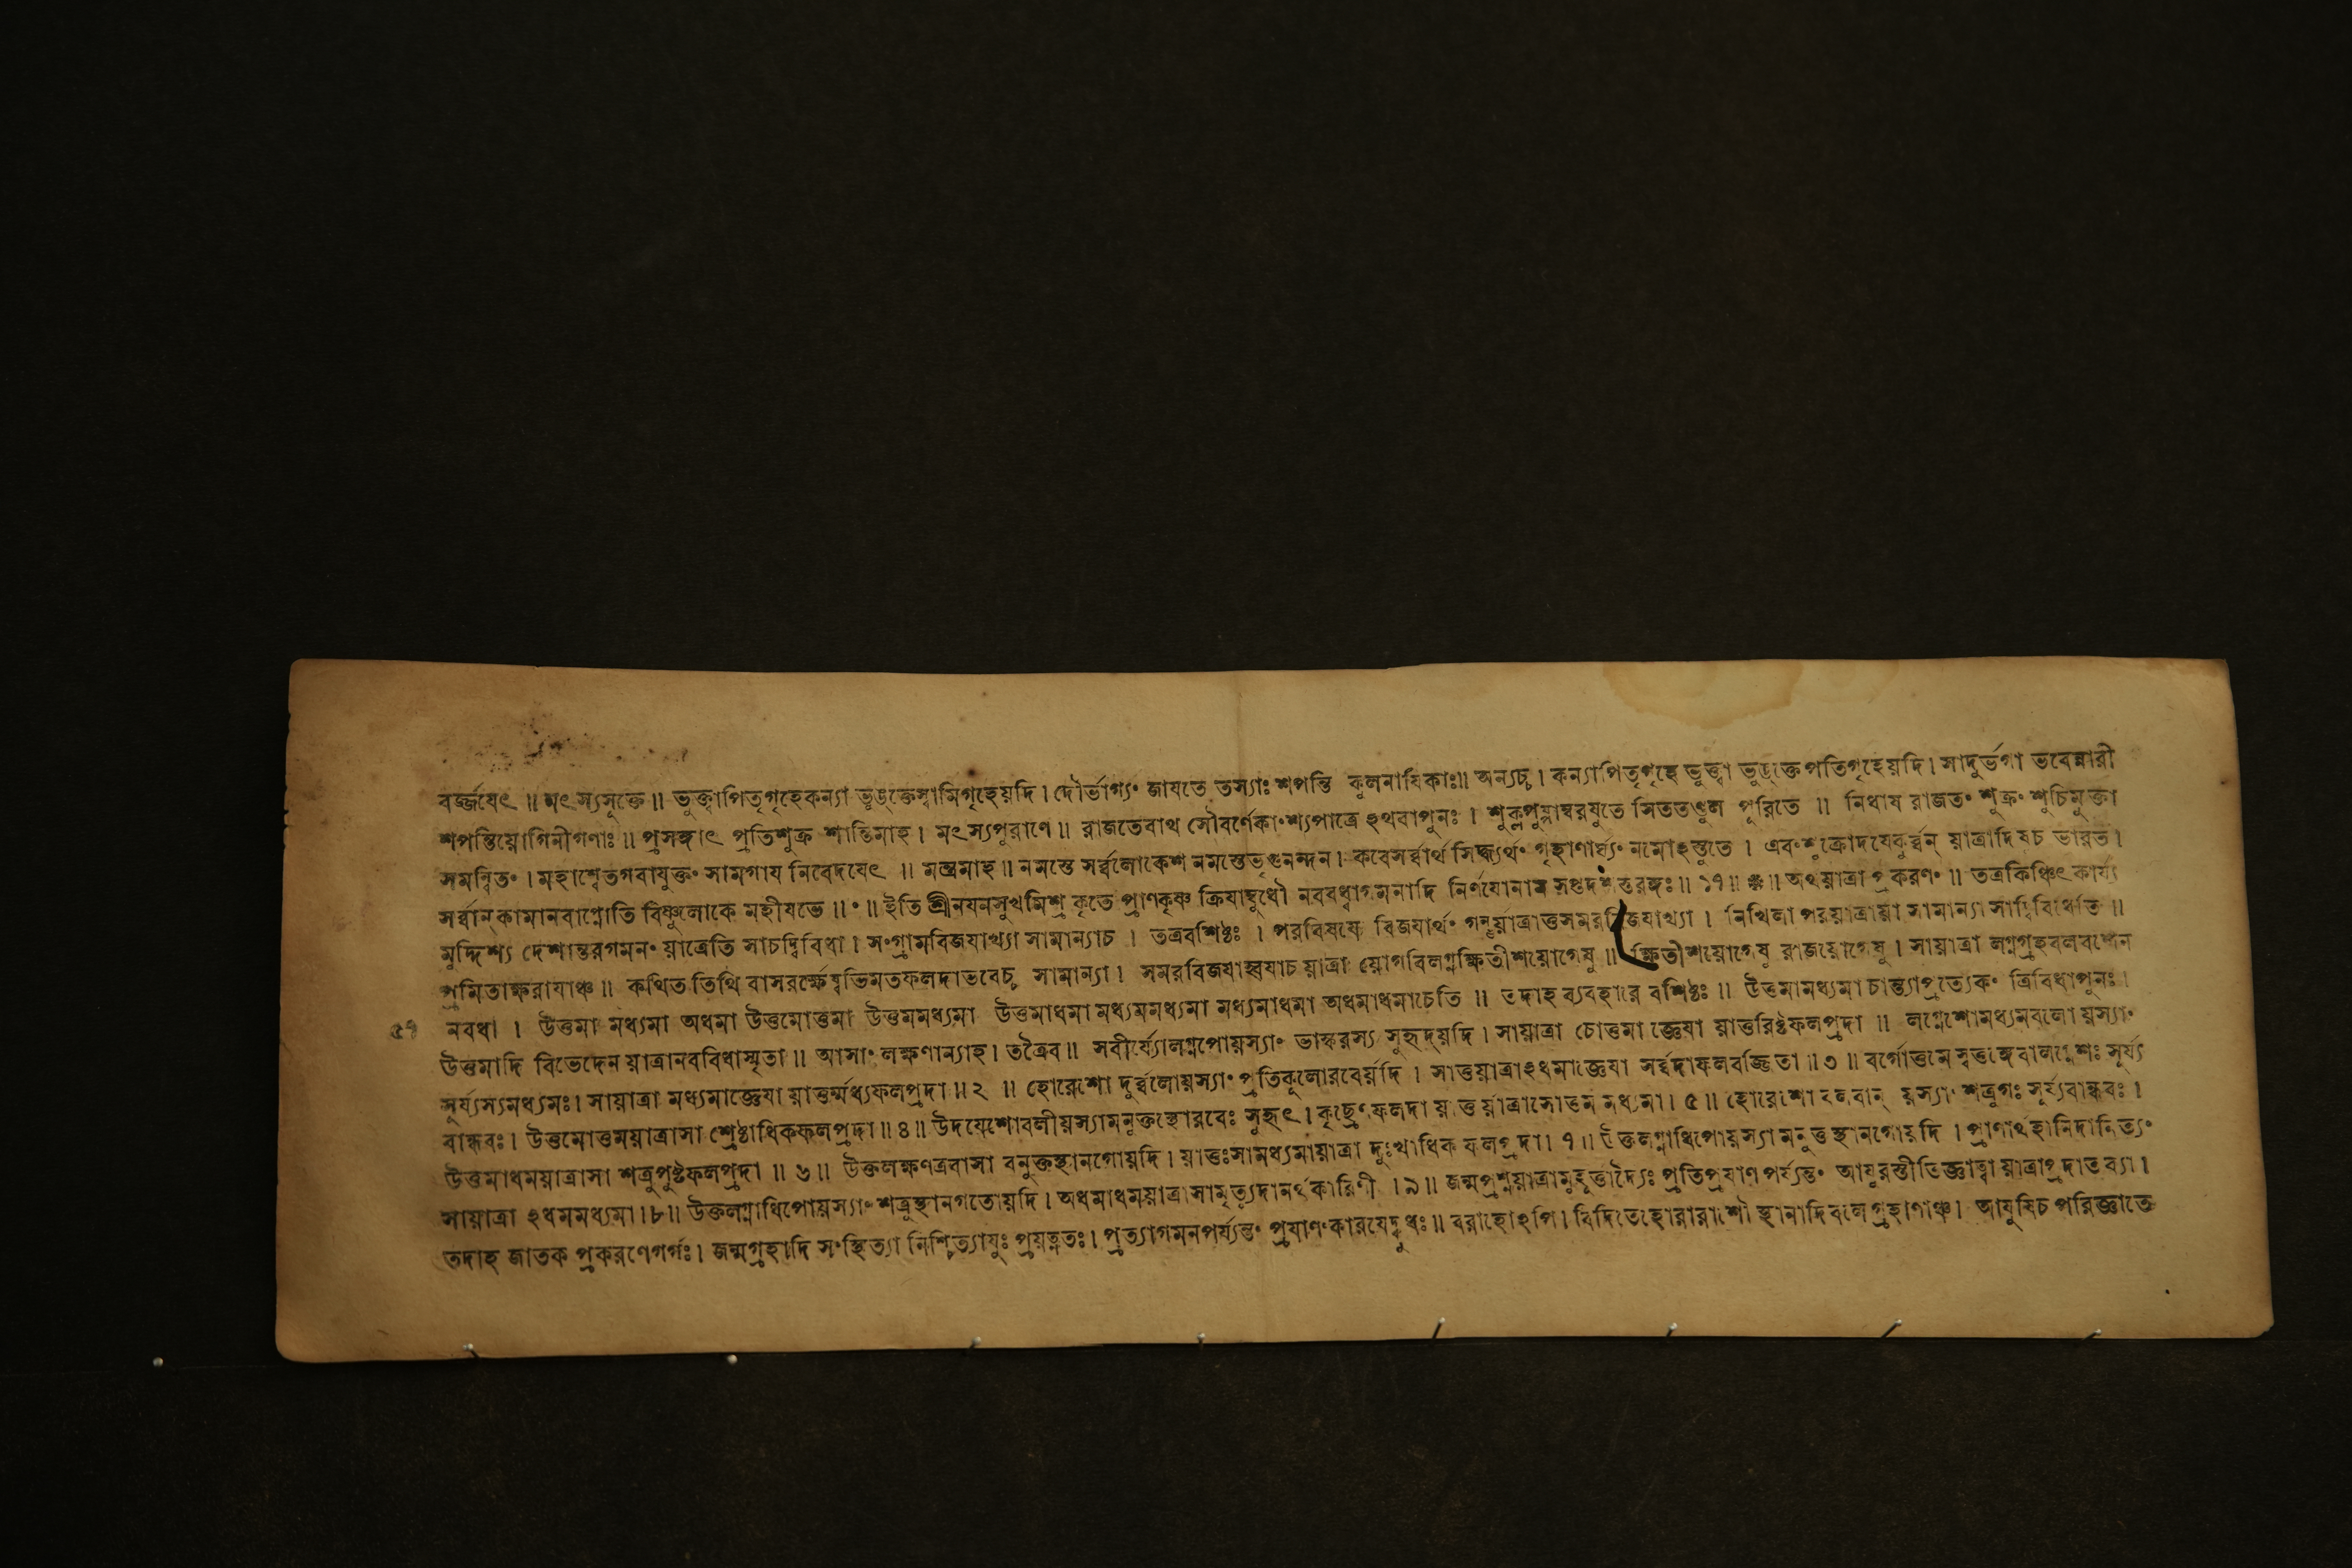 বর্জ্জযেৎ ॥ মৎস্যসূক্তে ॥ ভুক্ত্বাপিতৃগৃহেকন্যা ভুঙক্তেস্বামিগৃহেয়দি । দৌর্ভাগ্যং জাযতে তস্যাঃ শপন্তি কুলনাযিকাঃ॥ অন্যচ্চ । কন্যাপিতৃগৃহে ভুক্ত্বা ভুঙক্তে পতিগৃহেয়দি । সাদুর্ভগা ভবেন্নারী
শপন্তিয়োগিনীগণাঃ ॥ প্রসঙ্গাৎ প্রতিশুক্র শান্তিমাহ । মৎস্যপুরাণে ॥ রাজতেবাথ সৌবর্ণেকাংশ্যপাত্রে ঽথবাপুনঃ । শুক্লপুষ্পাম্বরযুতে সিততণ্ডুল পূরিতে ॥ নিধায রাজতং শুক্রং শুচিমুক্তা
সমন্বিতং । মহাশ্বেতগবাযুক্তং সামগায নিবেদযেৎ ॥ মন্ত্রমাহ ॥ নমস্তে সর্ব্বলোকেশ নমস্তেভৃগুনন্দন । কবেসর্ব্বার্থ সিদ্ধ্যর্থং গৃহাণার্ঘ্যং নমোঽস্তুতে । এবং শুক্রোদযেকুর্ব্বন্ য়াত্রাদিষচ ভারত ।
সর্ব্বান্ কামানবাপ্নোতি বিষ্ণুলোকে মহীযতে ॥ ॰ ॥ ইতি শ্রীনযনসুখমিশ্র কৃতে প্রাণকৃষ্ণ ক্রিযাম্বুধৌ নববধ্বাগমনাদি নির্ণযোনাম সপ্তদশস্তরঙ্গঃ ॥ ১৭ ॥ ❋ ॥ অথয়াত্রাপ্রকরণং ॥ তত্রকিঞ্চিৎ কার্য্য
মুদ্দিশ্য দেশান্তরগমনং য়াত্রেতি সাচদ্বিবিধা । সংগ্রামবিজযাখ্যা সামান্যাচ । তত্রবশিষ্ঠঃ । পরবিষযে বিজযার্থং গন্তুর্য়াত্রাত্তসমরবিজযাখ্যা । নিখিলা পরয়াত্রায়া সামান্যা সাদ্বিবিধেতি ॥
প্রমিতাক্ষরাযাঞ্চ ॥ কথিত তিথি বাসরর্ক্ষেষ্বভিমতফলদাভবেচ্চ সামান্যা । সমরবিজযাহ্বযাচ য়াত্রা য়োগবিলগ্নক্ষিতীশয়োগেষু ॥ ক্ষিতীশয়োগেষু রাজয়োগেষু । সায়াত্রা লগ্নগ্রহবলবশেন
৫৭ নবধা । উত্তমা মধ্যমা অধমা উত্তমোত্তমা উত্তমমধ্যমা উত্তমাধমা মধ্যমমধ্যমা মধ্যমাধমা অধমাধমাচেতি ॥ তদাহ ব্যবহারে বশিষ্ঠঃ ॥ উত্তমামধ্যমা চান্ত্যাপ্রত্যেকং ত্রিবিধাপুনঃ ।
উত্তমাদি বিভেদেন য়াত্রানববিধাস্মৃতা ॥ আসাং লক্ষণান্যাহ । তত্রৈব ॥ সবীর্য্যোলগ্নপোয়স্যাং ভাস্করস্য সুহৃদ্য়দি । সায়াত্রা চোত্তমা জ্ঞেযা য়াত্তরিষ্টফলপ্রদা ॥ লগ্নেশোমধ্যমবলো য়স্যাং
সূর্য্যস্যমধ্যমঃ । সায়াত্রা মধ্যমাজ্ঞেযা য়াত্তর্ম্মধ্যফলপ্রদা ॥ ২ ॥ হোরেশো দুর্ব্বলোয়স্যাং প্রতিকূলোরবের্য়দি । সাত্তয়াত্রাঽধমাজ্ঞেযা সর্ব্বদাফলবর্জ্জিতা ॥ ৩ ॥ বর্গোত্তমে স্বত্তঙ্গেবালগ্নেশঃ সূর্য্য
বান্ধবঃ । উত্তমোত্তময়াত্রাসা শ্রেষ্ঠাধিকফলপ্রদা ॥ ৪ ॥ উদযেশোবলীয়স্যামনুক্তস্থোরবেঃ সুহৃৎ । কৃছ্রেণফলদা য়াত্ত র্য়াত্রাসোত্তমমধ্যমা । ৫ ॥ হোরেশো বলবান্ য়স্যাং শত্রুগঃ সূর্য্যবান্ধবঃ ।
উত্তমাধময়াত্রাসা শত্রুপুষ্টফলপ্রদা ॥ ৬ ॥ উক্তলক্ষণত্রবাসা বনুক্তস্থানগোয়দি । য়াত্তঃসামধ্যমায়াত্রা দুঃখাধিক ফলপ্রদা । ৭ ॥ উক্তলগ্নাধিপোয়স্যা মনুক্তস্থানগোয়দি । প্রাণার্থহানিদানিত্যং
সায়াত্রা ঽধমমধ্যমা । ৮ ॥ উক্তলগ্নাধিপোয়স্যাং শত্রুস্থানগতোয়দি । অধমাধময়াত্রাসামৃত্যুদানর্থকারিণী । ৯ ॥ জন্মপ্রশ্নয়াত্রামুহূর্ত্তাদ্যৈঃ প্রতিপ্রযাণ পর্য্যন্তং আযুরস্তীতিজ্ঞাত্বা য়াত্রাপ্রদাতব্যা ।
তদাহ জাতক প্রকরণেগর্গঃ । জন্মগ্রহাদি সংস্থিত্যা নিশ্চিত্যাযুঃ প্রয়ত্নতঃ । প্রত্যাগমনপর্য্যন্তং প্রযাণংকারযেদ্বুধঃ ॥ বরাহোঽপি । বিদিতেহোরারাশৌ স্থানাদিবলেগ্রহাণাঞ্চ । আযুষিচ পরিজ্ঞাতে